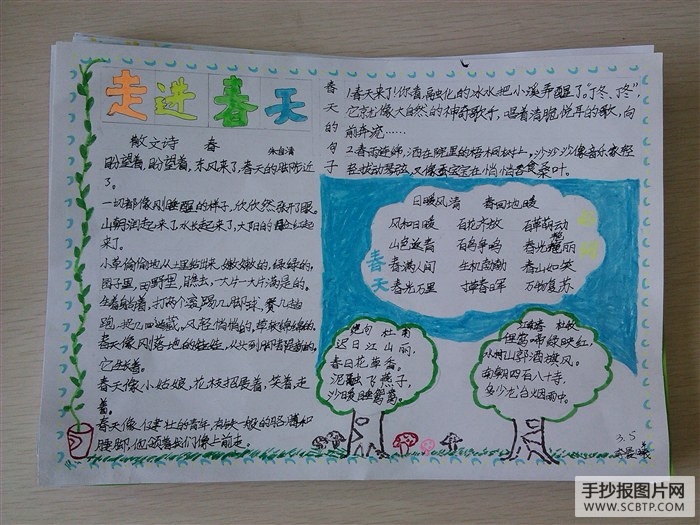 走进春天
散文诗 春
朱自清
盼望着,盼望着,东风来了,春天的脚步近
了。
一切都像刚睡醒的样子,欣欣然张开了眼。
山朗润起来了,水长起来了,太阳的脸红起
来了。
小草偷偷地从土里钻出来,嫩嫩的,绿绿的。
园子里,田野里,瞧去,一大片一大片满是的。
坐着,躺着,打两个滚,踢几脚球,赛几趟
跑,捉几回迷藏,风轻悄悄的,草软绵绵的。
春天像刚落地的娃娃,从头到脚都是新的,
它生长着。
春天像小姑娘,花枝招展着,笑着,走
着。
春天像健壮的青年,有铁一般的胳膊和
腰脚,他领着我们像上前走。
春天的句子
1.春天来了!你看,融化的冰水把小溪弄醒了。"丁冬、丁冬",
它就像大自然的神奇歌手,唱着清脆悦耳的歌,向
前奔流……
2.春雨连绵,洒在院里的梧桐树上,沙沙沙,像音乐家轻
轻拨动琴弦,又像蚕宝宝在悄悄吞食桑叶。
春天
日暖风清 春回地暖
风和日暖 百花齐放 百草萌动
山色返青 百鸟争鸣 春光艳丽
春满人间 生机勃勃 春山如笑
春光万里 万物复苏
绝句 杜甫
迟日江山丽,
春日花草香。
泥融飞燕子,
沙暖睡鸳鸯。
江南春 杜牧
千里莺啼绿映红,
水村山郭酒旗风。
南朝四百八十寺,
多少楼台烟雨中。
3.5
手抄报图片网
WWW.SCBTP.COM